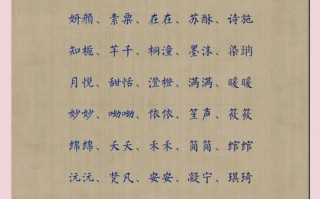 妍颜、素粟、在在、苏酥、诗施
知栀、芊千、桐潼、墨沫、染
月悦、甜恬、澄橙、满满、暖暖
妙妙、呦呦、依依、笙声、筱筱
绵绵、夭夭、禾禾、简简、绾绾
沅沅、梵凡、安安、凝宁、琪琦